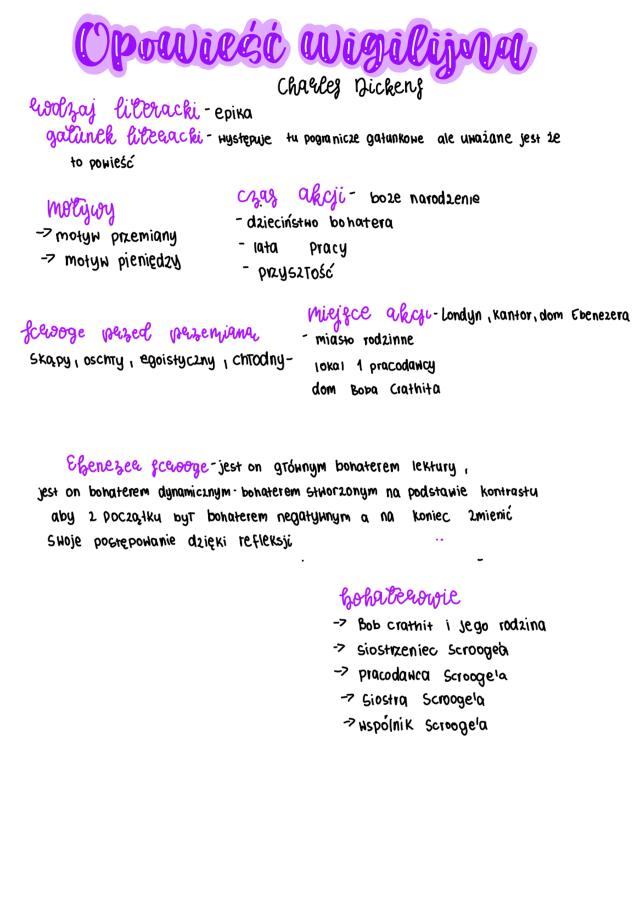 Opowieść wigilijna
Charles Dickens
rodzaj literacki - epika
gatunek literacki - występuje tu pogranicze gatunkowe ale uważane jest że
to powieść
motywy
→ motyw przemiany
→ motyw pieniędzy
czas akcji - boże narodzenie
- dzieciństwo bohatera
- lata pracy
- przyszłość
scrooge przed przemianą
skąpy, oschły, egoistyczny, chłodny -
miejsce akcji - Londyn, kantor, dom Ebenezera
- miasto rodzinne
lokal 1 pracodawcy
dom Boba Crathita
Ebenezer scrooge - jest on głównym bohaterem lektury,
jest on bohaterem dynamicznym - bohaterem stworzonym na podstawie kontrastu
aby z początku był bohaterem negatywnym a na koniec zmienić
swoje postępowanie dzięki refleksji
bohaterowie
→ Bob crathit i jego rodzina
→ siostrzeniec Scroogea
→ pracodawca Scrooge'a
→ siostra Scrooge'a
→ wspólnik Scrooge'a